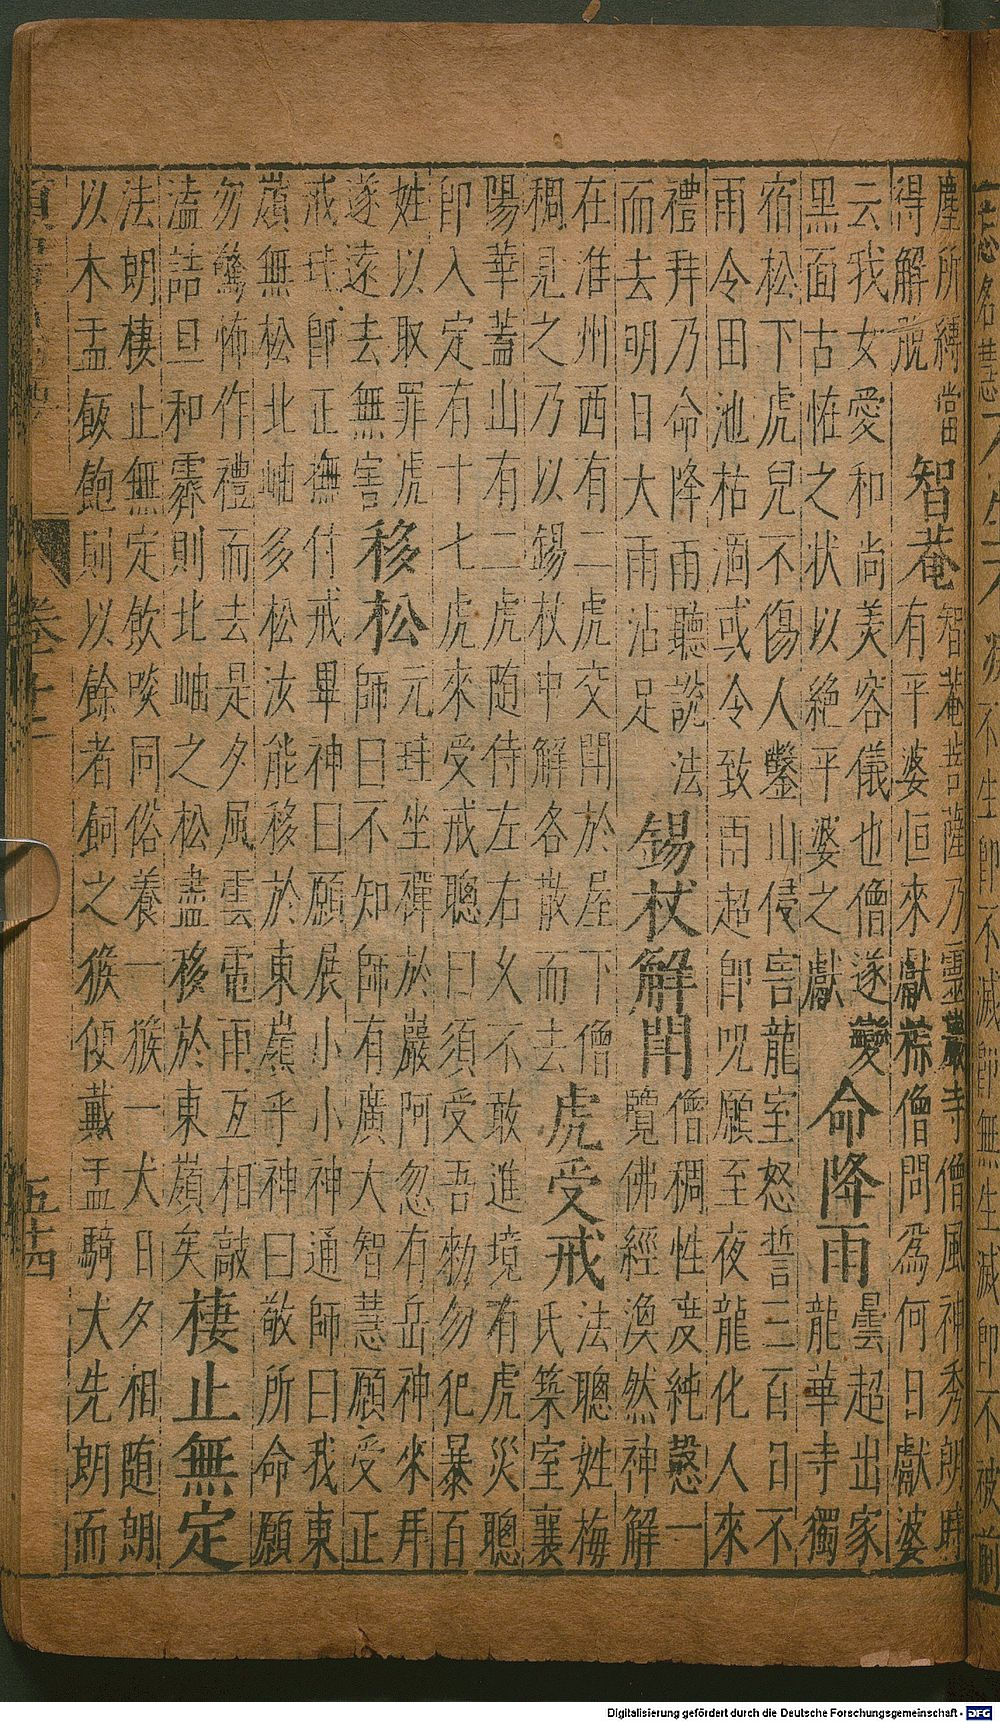 塵所縛當
得解脫
智菴
智菴菩薩乃靈巖寺僧風神秀朗時
有平婆恒來獻粽僧問為何日獻婆
云我女愛和尚美容儀也僧遂變
黑面古恠之状以絶平婆之獻
命降雨
曇超出家
龍華寺獨
宿松下虎兒不傷人鑿山侵害龍室怒誓三百日不
雨令田池枯涸或令致雨超即呪願至夜龍化人來
禮拜乃命降雨聽說法
而去明日大雨沾足
錫杖解鬥
僧稠性度純懿一
覽佛經渙然神解
在淮州西有二虎交鬥於屋下僧
稠見之乃以錫杖中解各散而去
虎受戒
法聰姓梅
氏築室襄
陽華蓋山有二虎随侍左右久不敢進境有虎災聰
即入定有十七虎來受戒聰曰須受吾勑勿犯暴百
姓以取罪虎
遂遠去無害
移松
元珪坐禪於巖阿忽有岳神來拜
師曰不知師有廣大智慧願受正
戒珪即正撫付戒畢神曰願展小小神通師曰我東
嵿無松北岫多松汝能移於東嶷乎神曰敬所命願
勿驚怖作禮而去是夕風雲電雨亙相敲
溘詰旦和霽則北岫之松盡移於東嵿矣
棲止無定
法朗棲止無定飲啖同俗養一猴一犬日夕相随朗
以木盂飯飽則以餘者飼之猴便戴盂騎犬先朗而
卷十二
五十四
不生即不滅即無生滅即不被
Digitalisierung gefördert durch die Deutsche Forschungsgemeinschaft - DFG